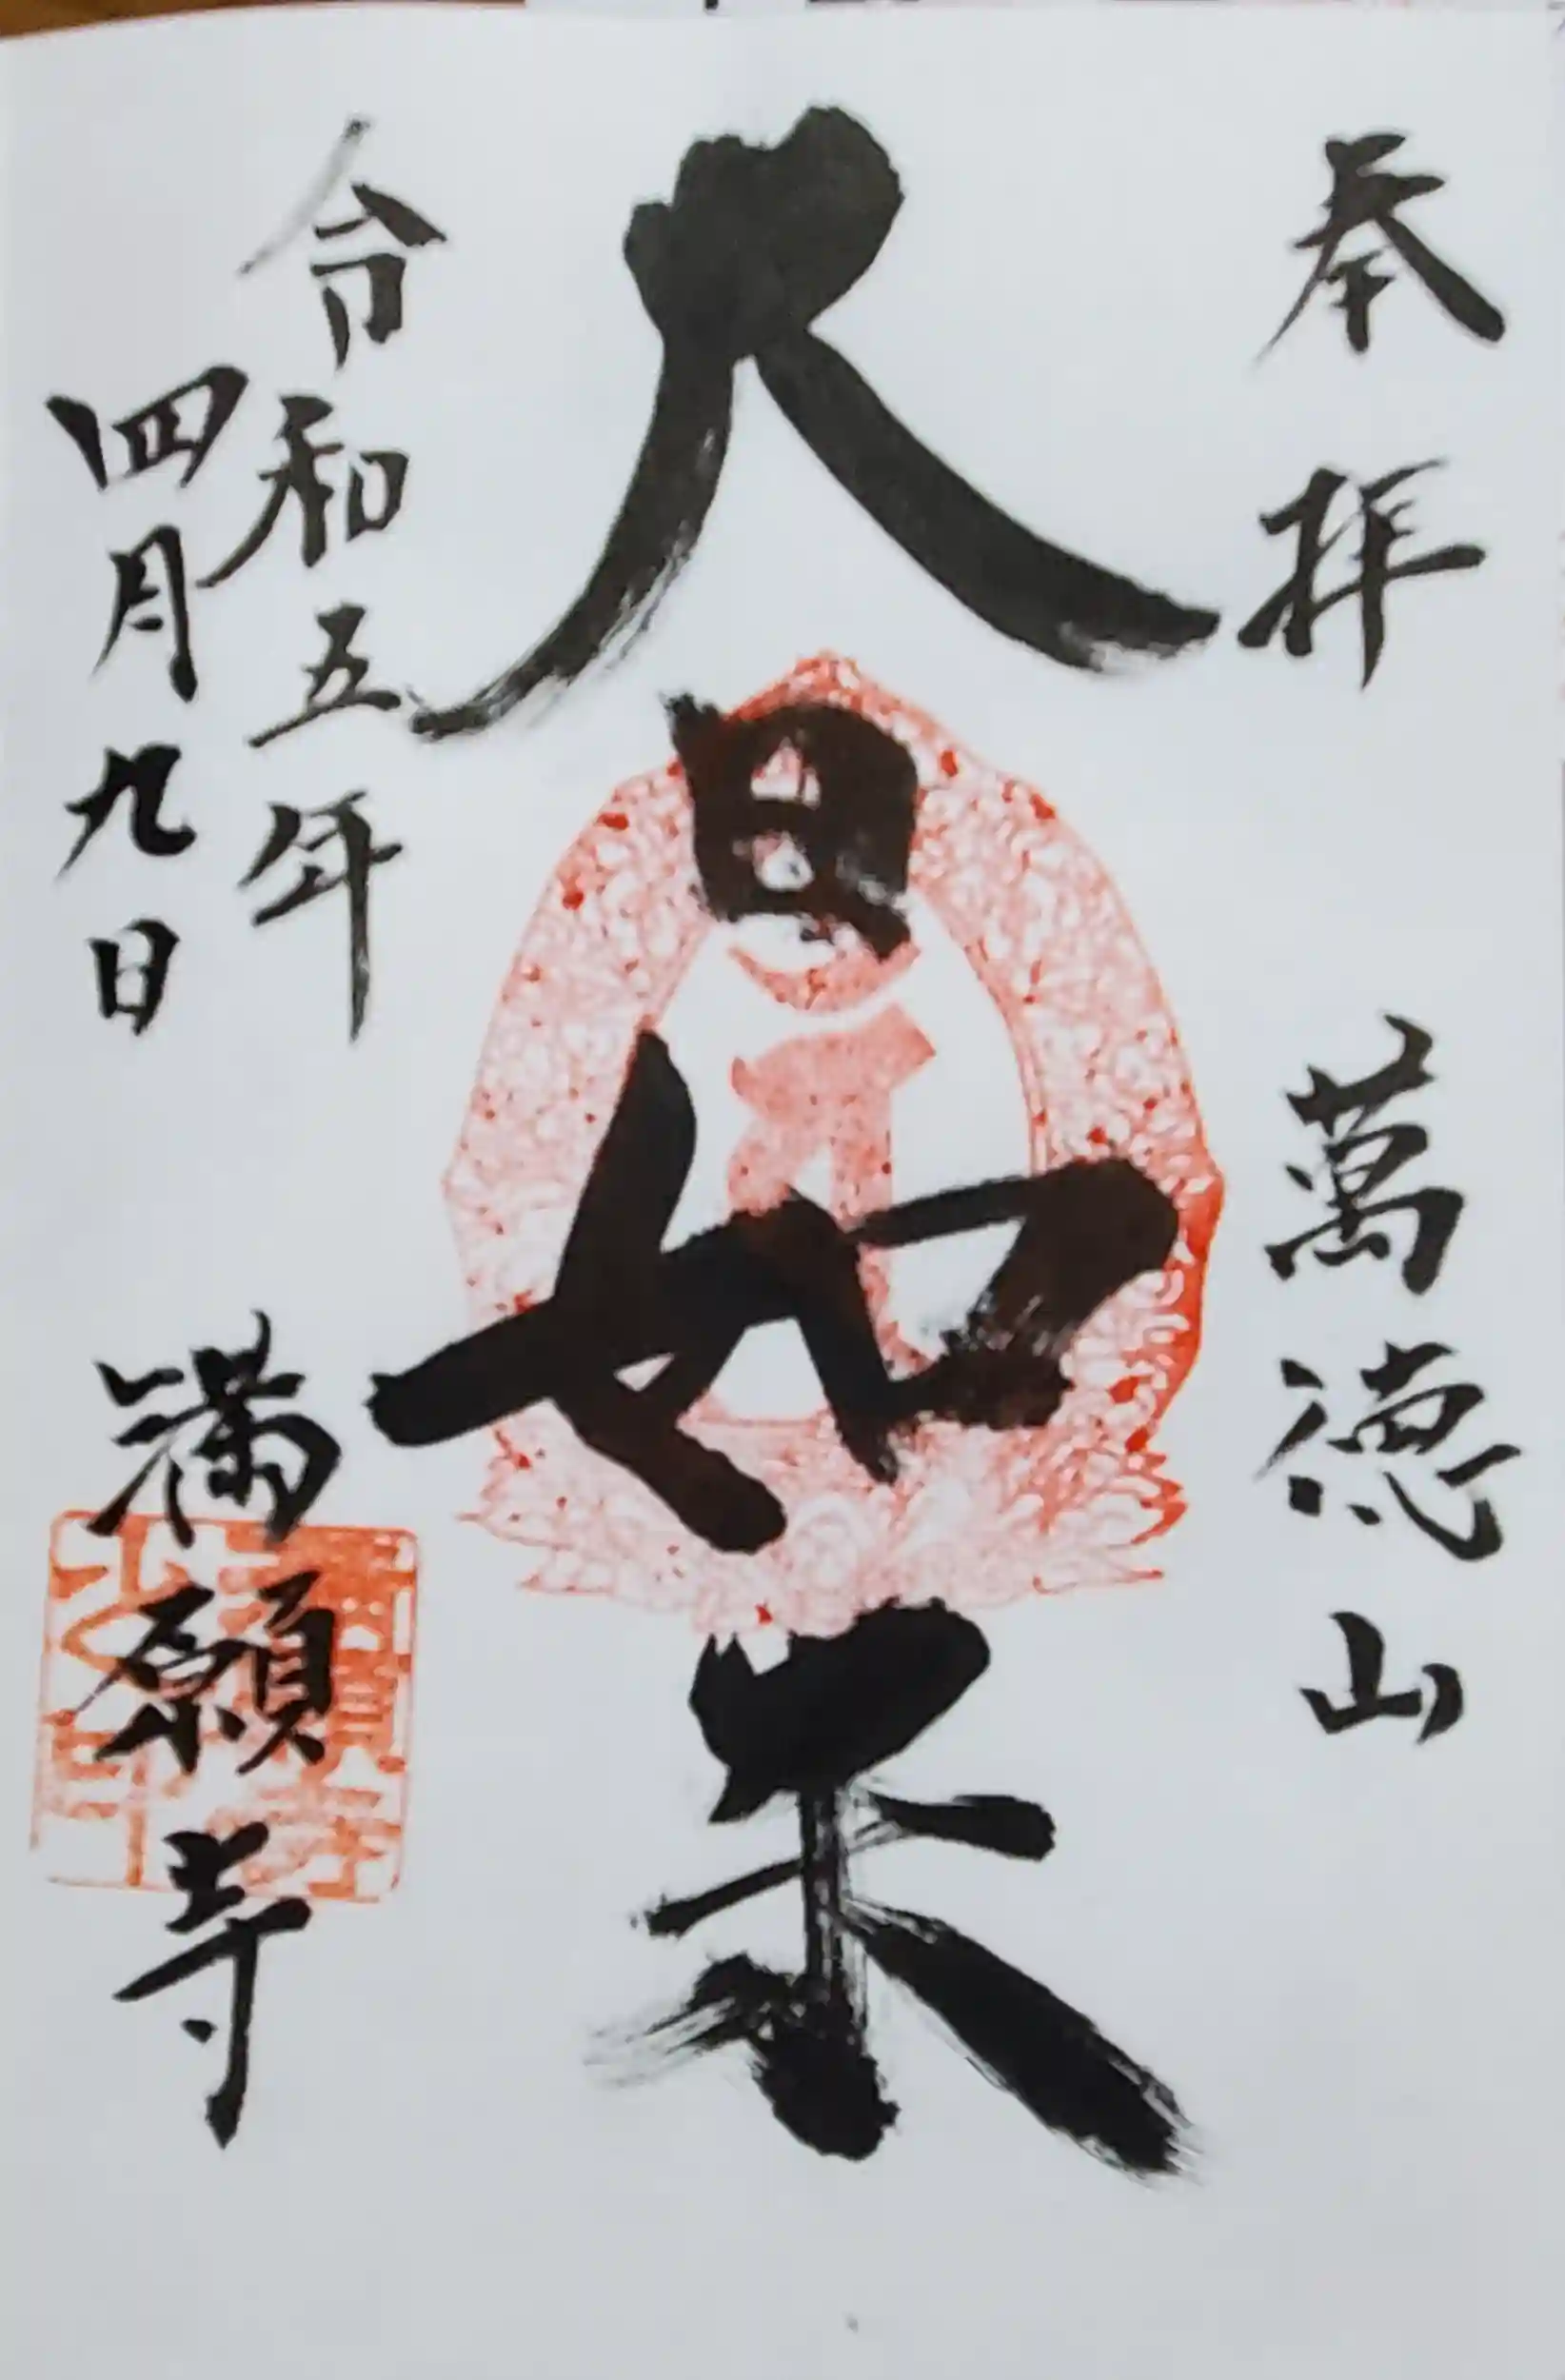 奉拝
萬徳山
大日如来
令和五年
四月九日
満願寺